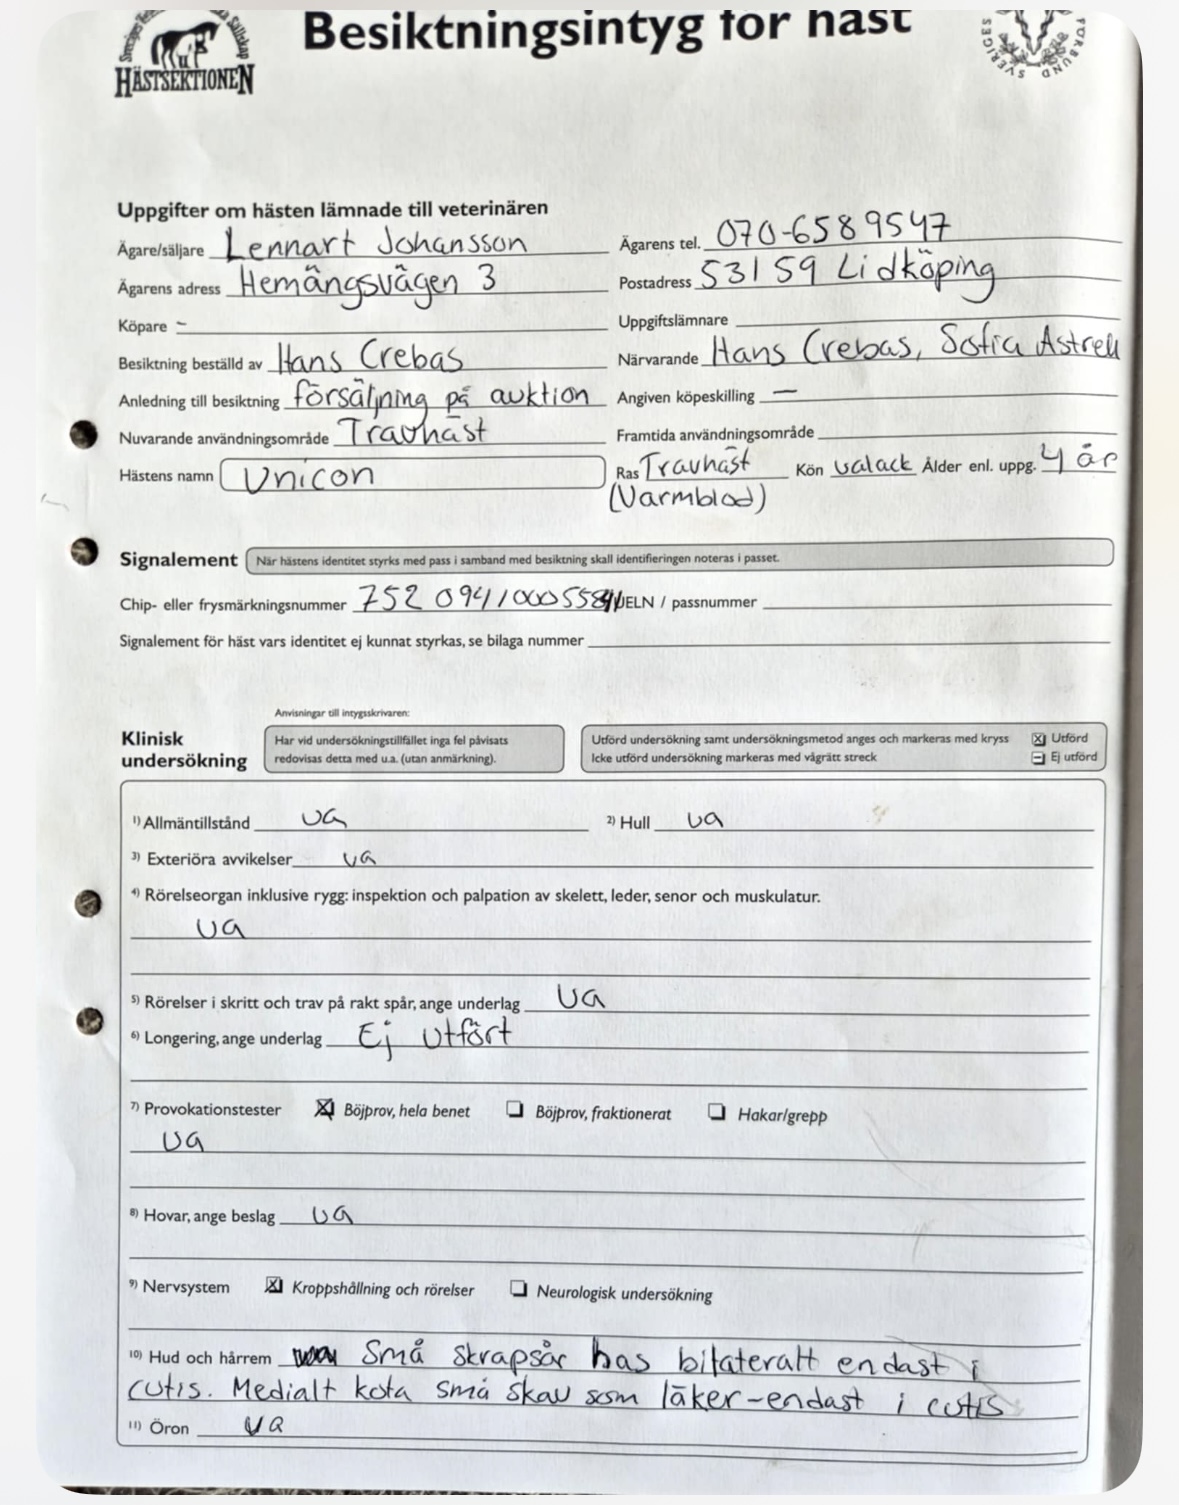 Besiktningsintyg för häst
HÄSTSEKTIONEN
SVERIGES
FÖRBUND
Uppgifter om hästen lämnade till veterinären
Ägare/säljare Lennart Johansson Ägarens tel. 070-6589547
Ägarens adress Hemängsvägen 3 Postadress 531 59 Lidköping
Köpare - Uppgiftslämnare
Besiktning beställd av Hans Crebas Närvarande Hans Crebas, Sofia Astrell
Anledning till besiktning försäljning på auktion Angiven köpeskilling —
Nuvarande användningsområde Travhäst Framtida användningsområde
Hästens namn Unicon Ras Travhäst Kön valack Ålder enl. uppg. 4 år
(Varmblod)
Signalement När hästens identitet styrks med pass i samband med besiktning skall identifieringen noteras i passet.
Chip- eller frysmärkningsnummer UELN / passnummer
Signalement för häst vars identitet ej kunnat styrkas, se bilaga nummer
Anvisningar till intygsskrivaren:
Klinisk undersökning
Har vid undersökningstillfället inga fel påvisats
redovisas detta med u.a. (utan anmärkning).
Utförd undersökning samt undersökningsmetod anges och markeras med kryss Utförd
Icke utförd undersökning markeras med vågrätt streck Ej utförd
1) Allmäntillstånd ua 2) Hull ua
3) Exteriöra avvikelser ua
4) Rörelseorgan inklusive rygg: inspektion och palpation av skelett, leder, senor och muskulatur.
ua
5) Rörelser i skritt och trav på rakt spår, ange underlag ua
6) Longering, ange underlag Ej utfört
7) Provokationstester Böjprov, hela benet Böjprov, fraktionerat Hakar/grepp
ua
8) Hovar, ange beslag ua
9) Nervsystem Kroppshållning och rörelser Neurologisk undersökning
10) Hud och hårrem Små skrapsår has bilateralt endast i
cutis. Medialt kota små skav som läker-endast i cutis
11) Öron ua